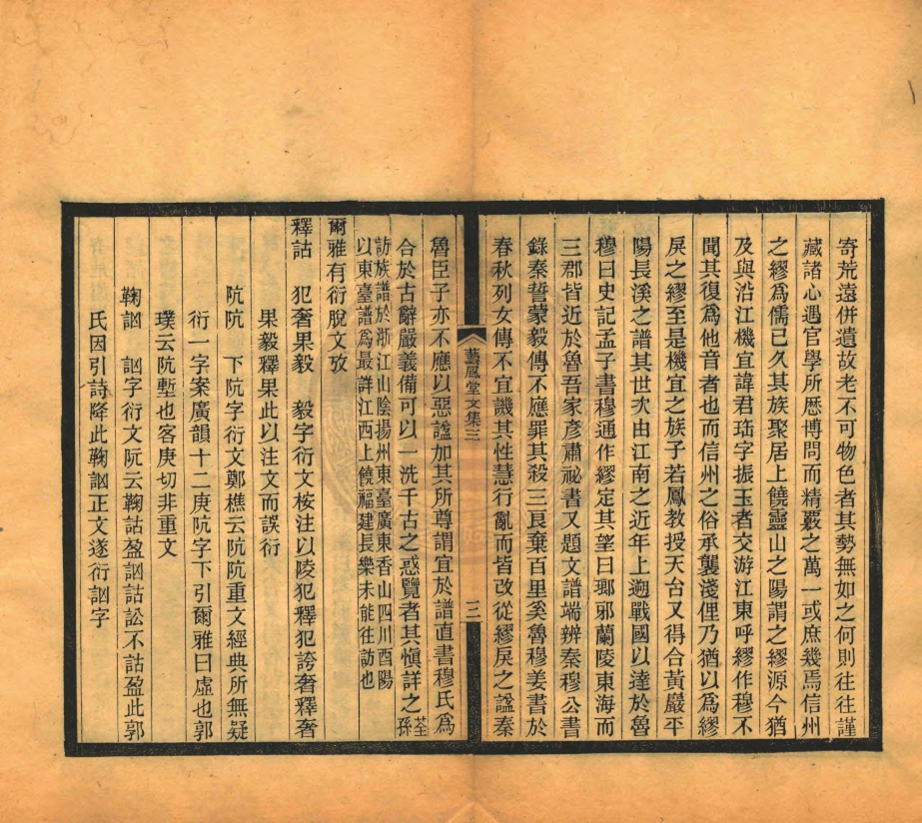 寄荒遠併遺故老不可物色者其勢無如之何則往往謹
藏諸心遇官學所歷博問而精覈之萬一或庶幾焉信州
之繆爲儒已久其族聚居上饒靈山之陽謂之繆源今猶
及與沿江機宜諱君珤字振玉者交游江東呼繆作穆不
聞其復爲他音者也而信州之俗承襲淺俚乃猶以爲繆
戾之繆至是機宜之族子若鳳教授天台又得合黃巖平
陽長溪之譜其世次由江南之近年上遡戰國以達於魯
穆曰史記孟子書穆通作繆定其六望曰瑯邪蘭陵東海而
三郡皆近於魯吾家彥肅祕書又題文譜端辨秦穆公書
錄秦誓蒙毅傳不應罪其殺三良棄百里奚魯穆姜書於
春秋列女傳不宜譏其性慧行亂而皆改從繆戾之諡秦
藝風堂文集三
三
魯臣子亦不應以惡諡加其所尊謂宜於譜直書穆氏爲
合於古辭嚴義備可以一洗千古之惑覽者其愼詳之荃孫
訪族譜於浙江山陰揚州東臺廣東香山四川酉陽
以東臺譜爲最詳江西上饒福建長樂未能往訪也
爾雅有衍脫文攷
釋詁 犯奢果毅 毅字衍文桉注以陵犯釋犯誇奢釋奢
果毅釋果此以注文而誤衍
阬阬 下阬字衍文鄭樵云阬阬重文經典所無疑
衍一字案廣韻十二庚阬字下引爾雅曰虛也郭
璞云阬塹也客庚切非重文
鞠訩 訩字衍文阮云鞠詁盈訩詁訟不詁盈此郭
氏因引詩降此鞠訩正文遂衍訩字